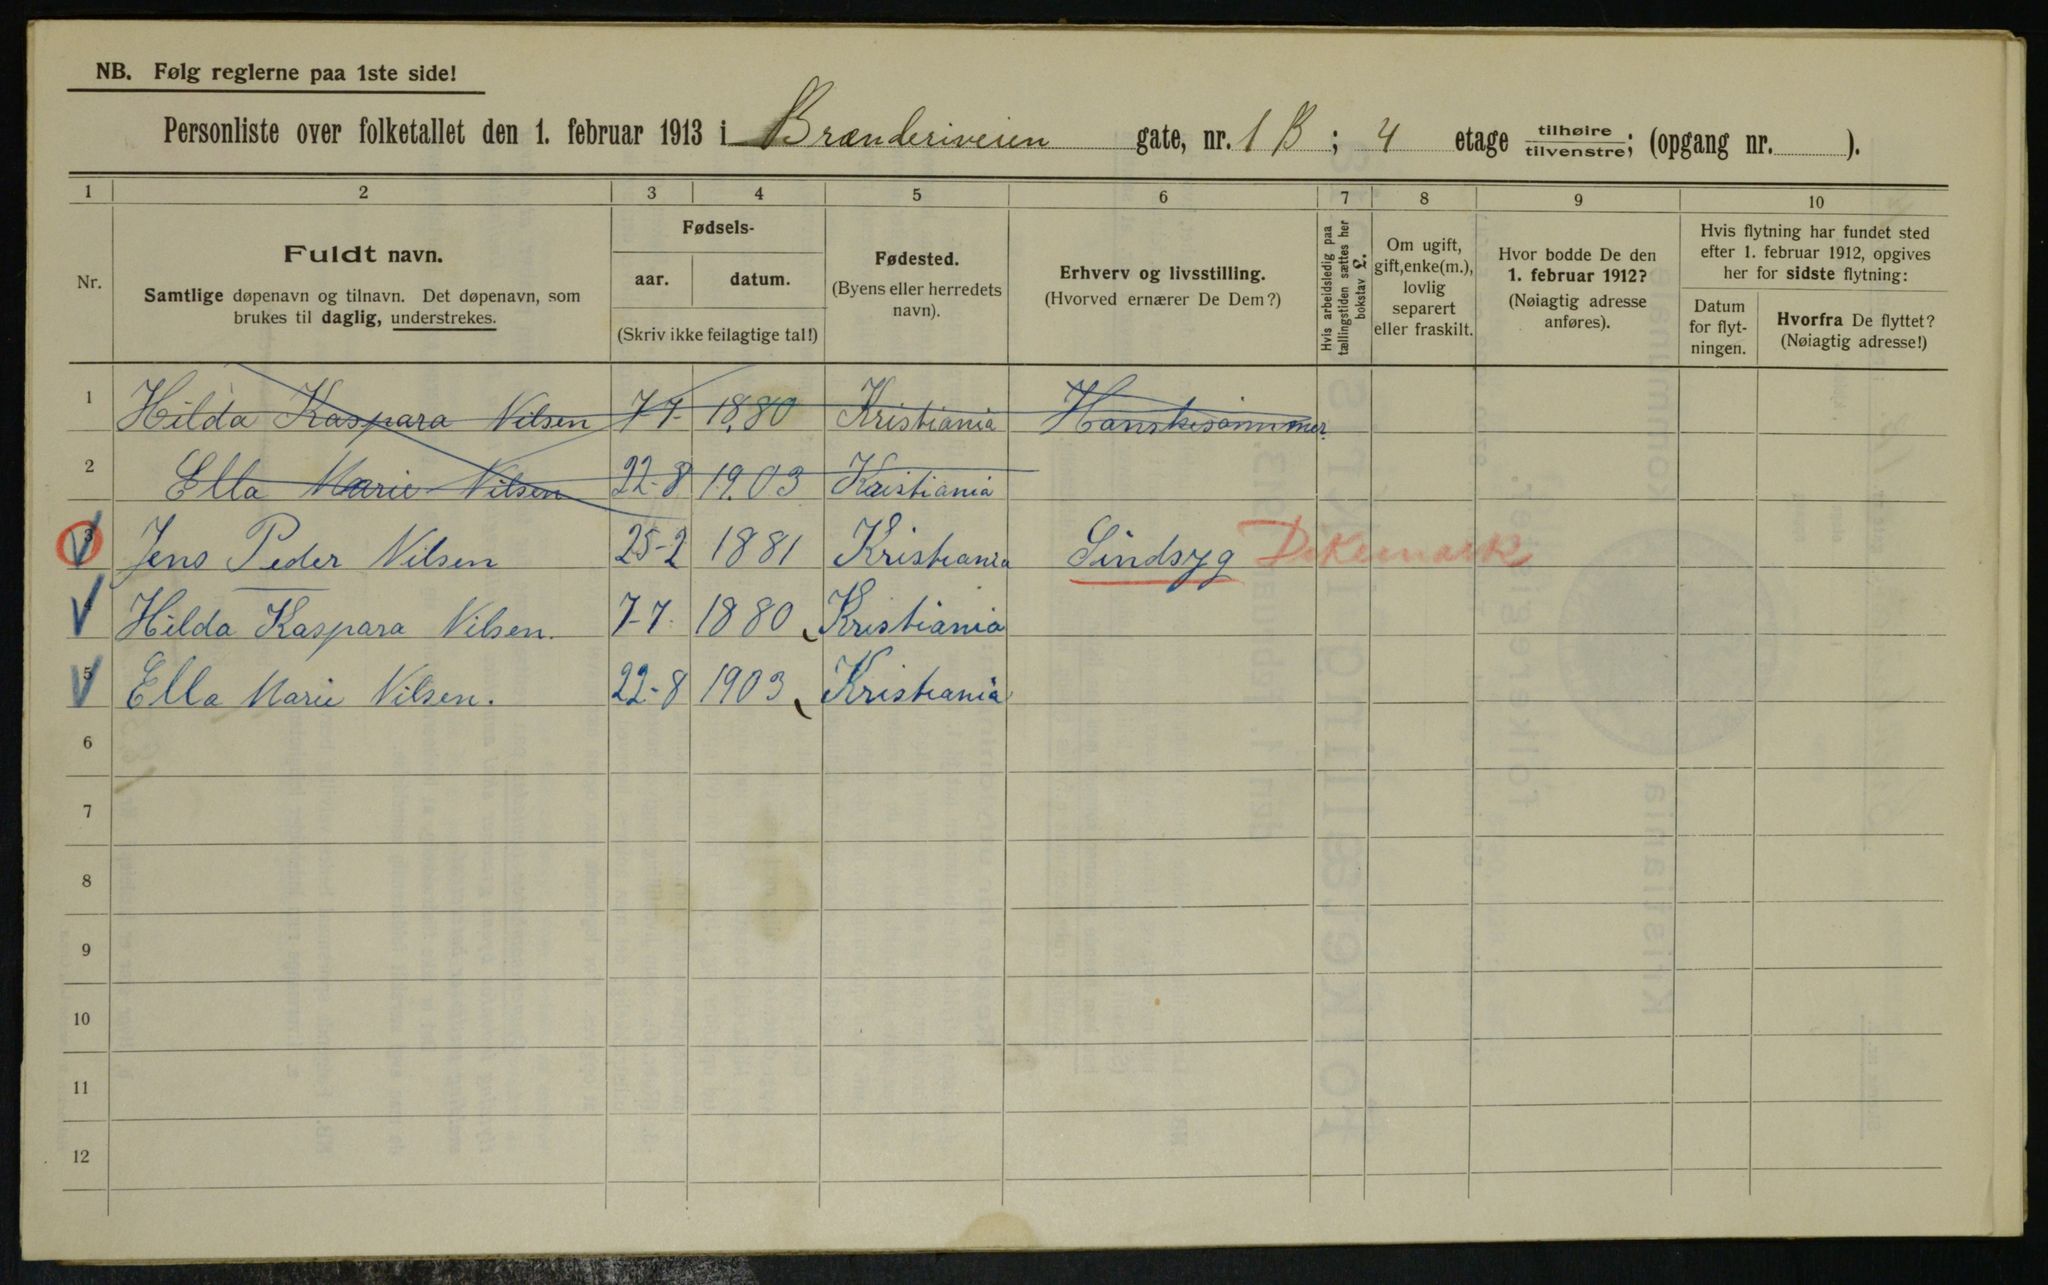 NB. Følg reglerne paa 1ste side!
Personliste over folketallet den 1. februar 1913 i Brænderiveien gate, nr. 1 B; 4 etage tilhøire/tilvenstre; (opgang nr. ).
1 2 3 4 5 6 7 8 9 10
Nr.
Fuldt navn.
Samtlige døpenavn og tilnavn. Det døpenavn, som
brukes til daglig, understrekes.
Fødsels-
aar. datum.
(Skriv ikke feilagtige tal!)
Fødested.
(Byens eller herredets
navn).
Erhverv og livsstilling.
(Hvorved ernærer De Dem?)
Hvis arbeidsledig paa
tællingstiden sættes her
bokstav L.
Om ugift,
gift, enke(m.),
lovlig
separert
eller fraskilt.
Hvor bodde De den
1. februar 1912?
(Nøiagtig adresse
anføres).
Hvis flytning har fundet sted
efter 1. februar 1912, opgives
her for sidste flytning:
Datum
for flyt-
ningen.
Hvorfra De flyttet?
(Nøiagtig adresse!)
1 Hilda Kaspara Nilsen 7-7- 1880 Kristiania Hanskesømmer
2 Ella Marie Nilsen 22-8 1903 Kristiania
3 Jens Peder Nilsen 25-2 1881 Kristiania Sindsyg Dikemark
Hilda Kaspara Nilsen. 7-7. 1880 Kristiania
5 Ella Marie Nilsen. 22-8 1903 Kristiania
6
7
8
9
10
11
12